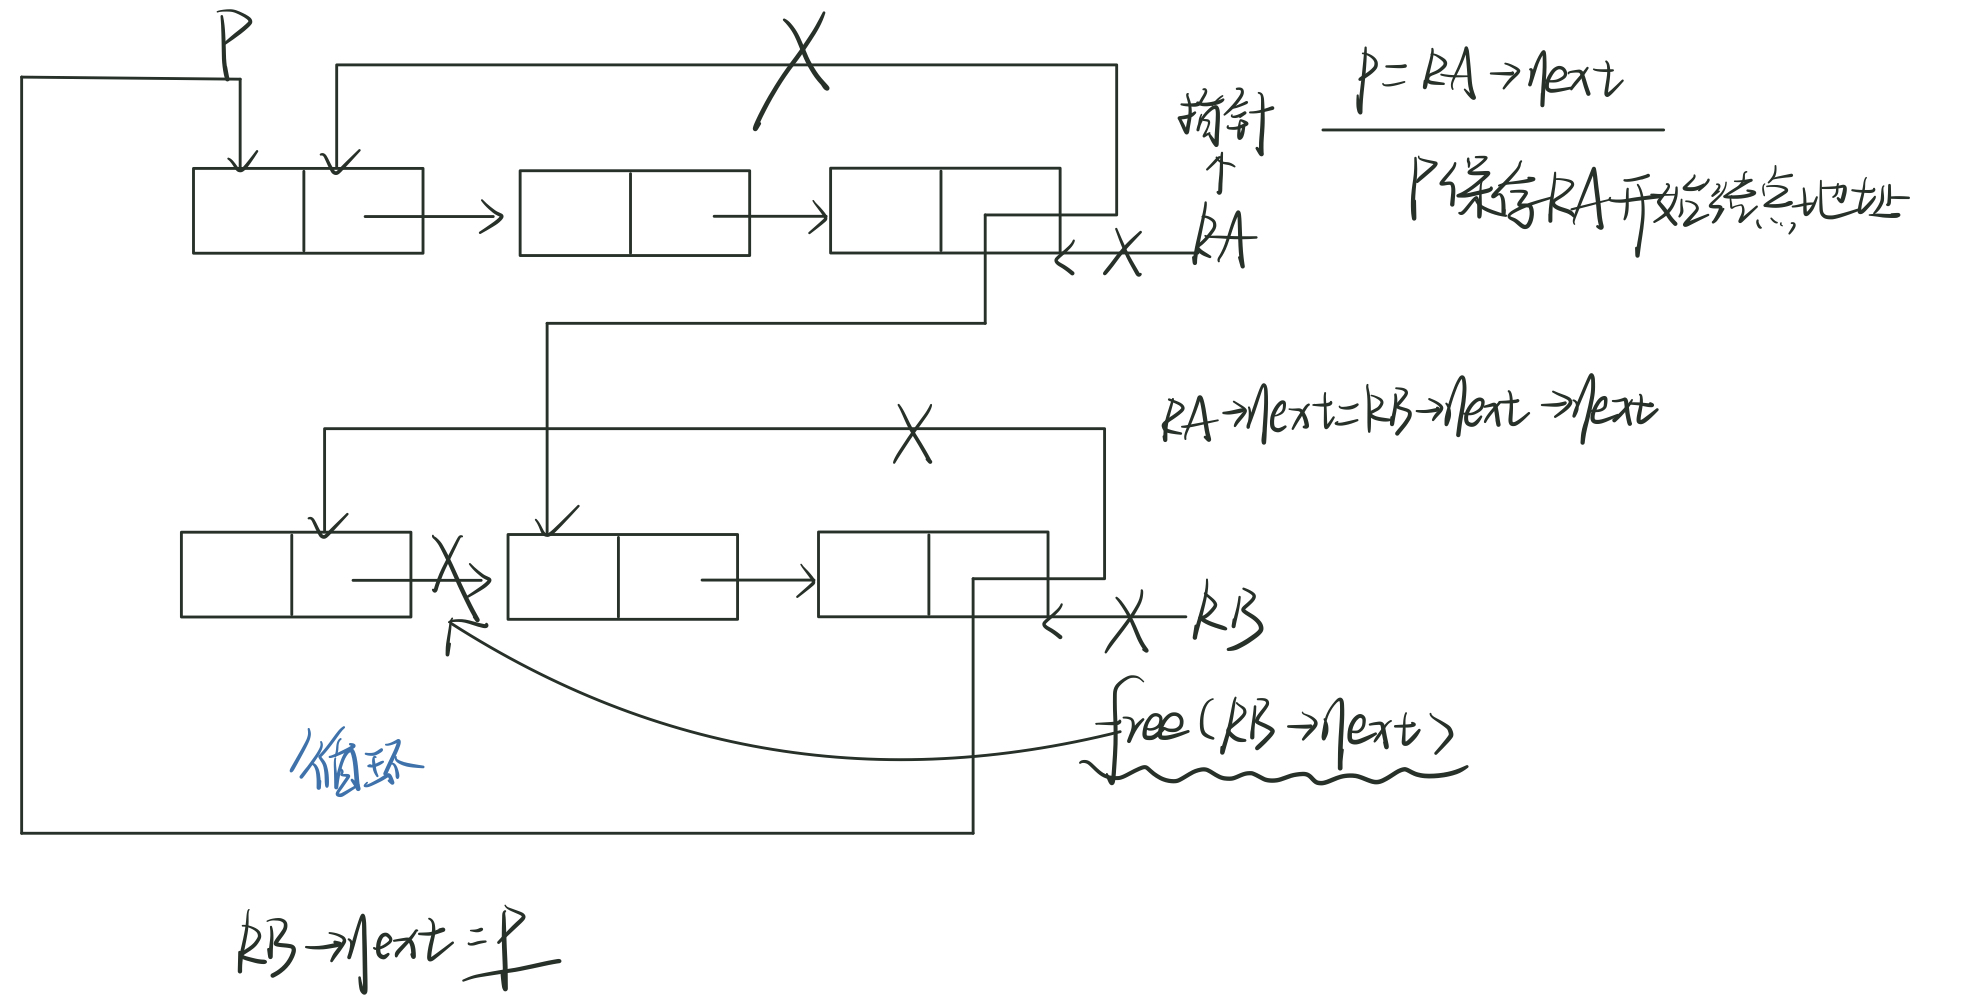 P
P=RA→next
指针
P保存RA开始结点地址
RA
RA→next=RB→next→next
RB
free(RB→next)
循环
RB→next=P